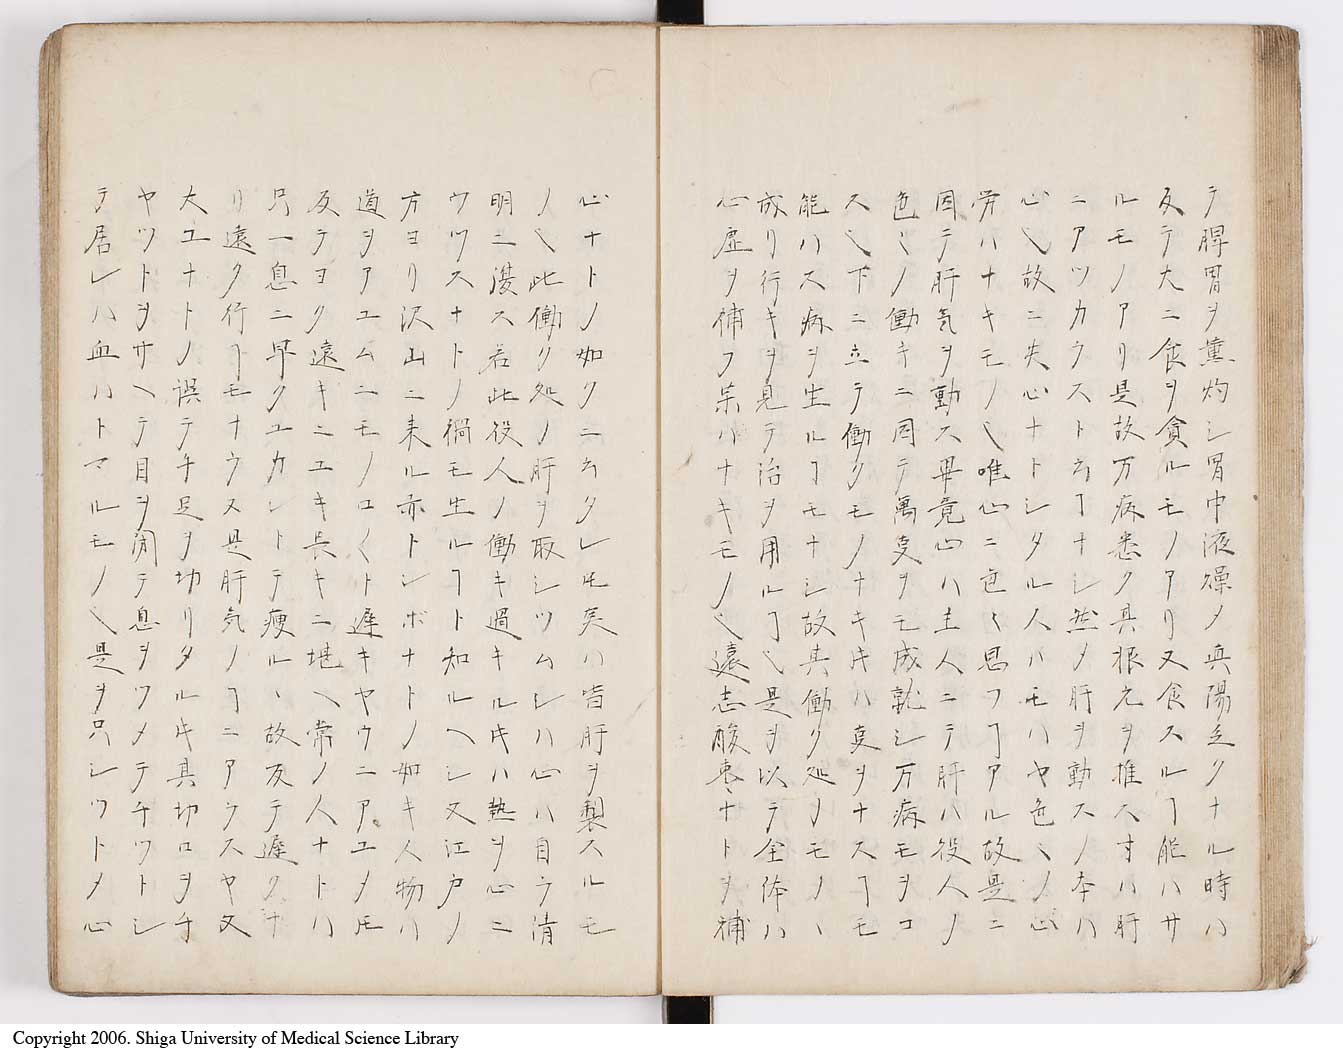 テ脾胃ヲ薫灼シ胃中液燥メ真陽乏クナル時ハ
反テ大ニ食ヲ貪ルモノアリ又食スルヿ能ハサ
ルモノアリ是故万病悉ク其根元ヲ推ス寸ハ肝
ニアツカウスト云ヿナシ然メ肝ヲ動スノ本ハ
心也故ニ失心ナトシタル人ハモハヤ色〻ノ心
労ハナキモノ也唯心ニ色〻思フヿアル故是ニ
因テ肝気ヲ動ス畢竟心ハ主人ニテ肝ハ役人ノ
色〻ノ働キニ因テ萬叓ヲモ成就シ万病モヲコ
ス也下ニ立テ働クモノナキ𪜈ハ叓ヲナスヿモ
能ハス病ヲ生ルヿモナシ故其働ク処ノモノヽ
成リ行キヲ見テ治ヲ用ルヿ也是ヲ以テ全体ハ
心虚ヲ補フ藥ハナキモノ也遠志酸棗ナトヲ補
心ナトノ如クニ云クレ𪜈矣ハ皆肝ヲ製スルモ
ノ也此働ク処ノ肝ヲ取シツムレハ心ハ自ラ清
明ニ復ス若此役人ノ働キ過キル𪜈ハ熱ヲ心ニ
ウツスナトノ禍モ生ルヿト知ルヘシ又江戸ノ
方ヨリ沢山ニ来ル赤トンボナトノ如キ人物ハ
道ヲアユムニモノロ〱ト遅キヤウニアユメ𪜈
反テヨク遠キニユキ長キニ堪ヘ常ノ人ナトハ
只一息ニ早クユカントテ痩ルヽ故反テ遅クナ
リ遠ク行ヿモナラス是肝気ノヿニアラスヤ又
大工ナトノ誤テ手足ヲ切リタル𪜈其切口ヲチ
ヤツトヲサヘテ目ヲ閉テ息ヲツメテチツトシ
テ居レハ血ハトマルモノ也是ヲ只シツトメ心
Copyright 2006. Shiga University of Medical Science Library